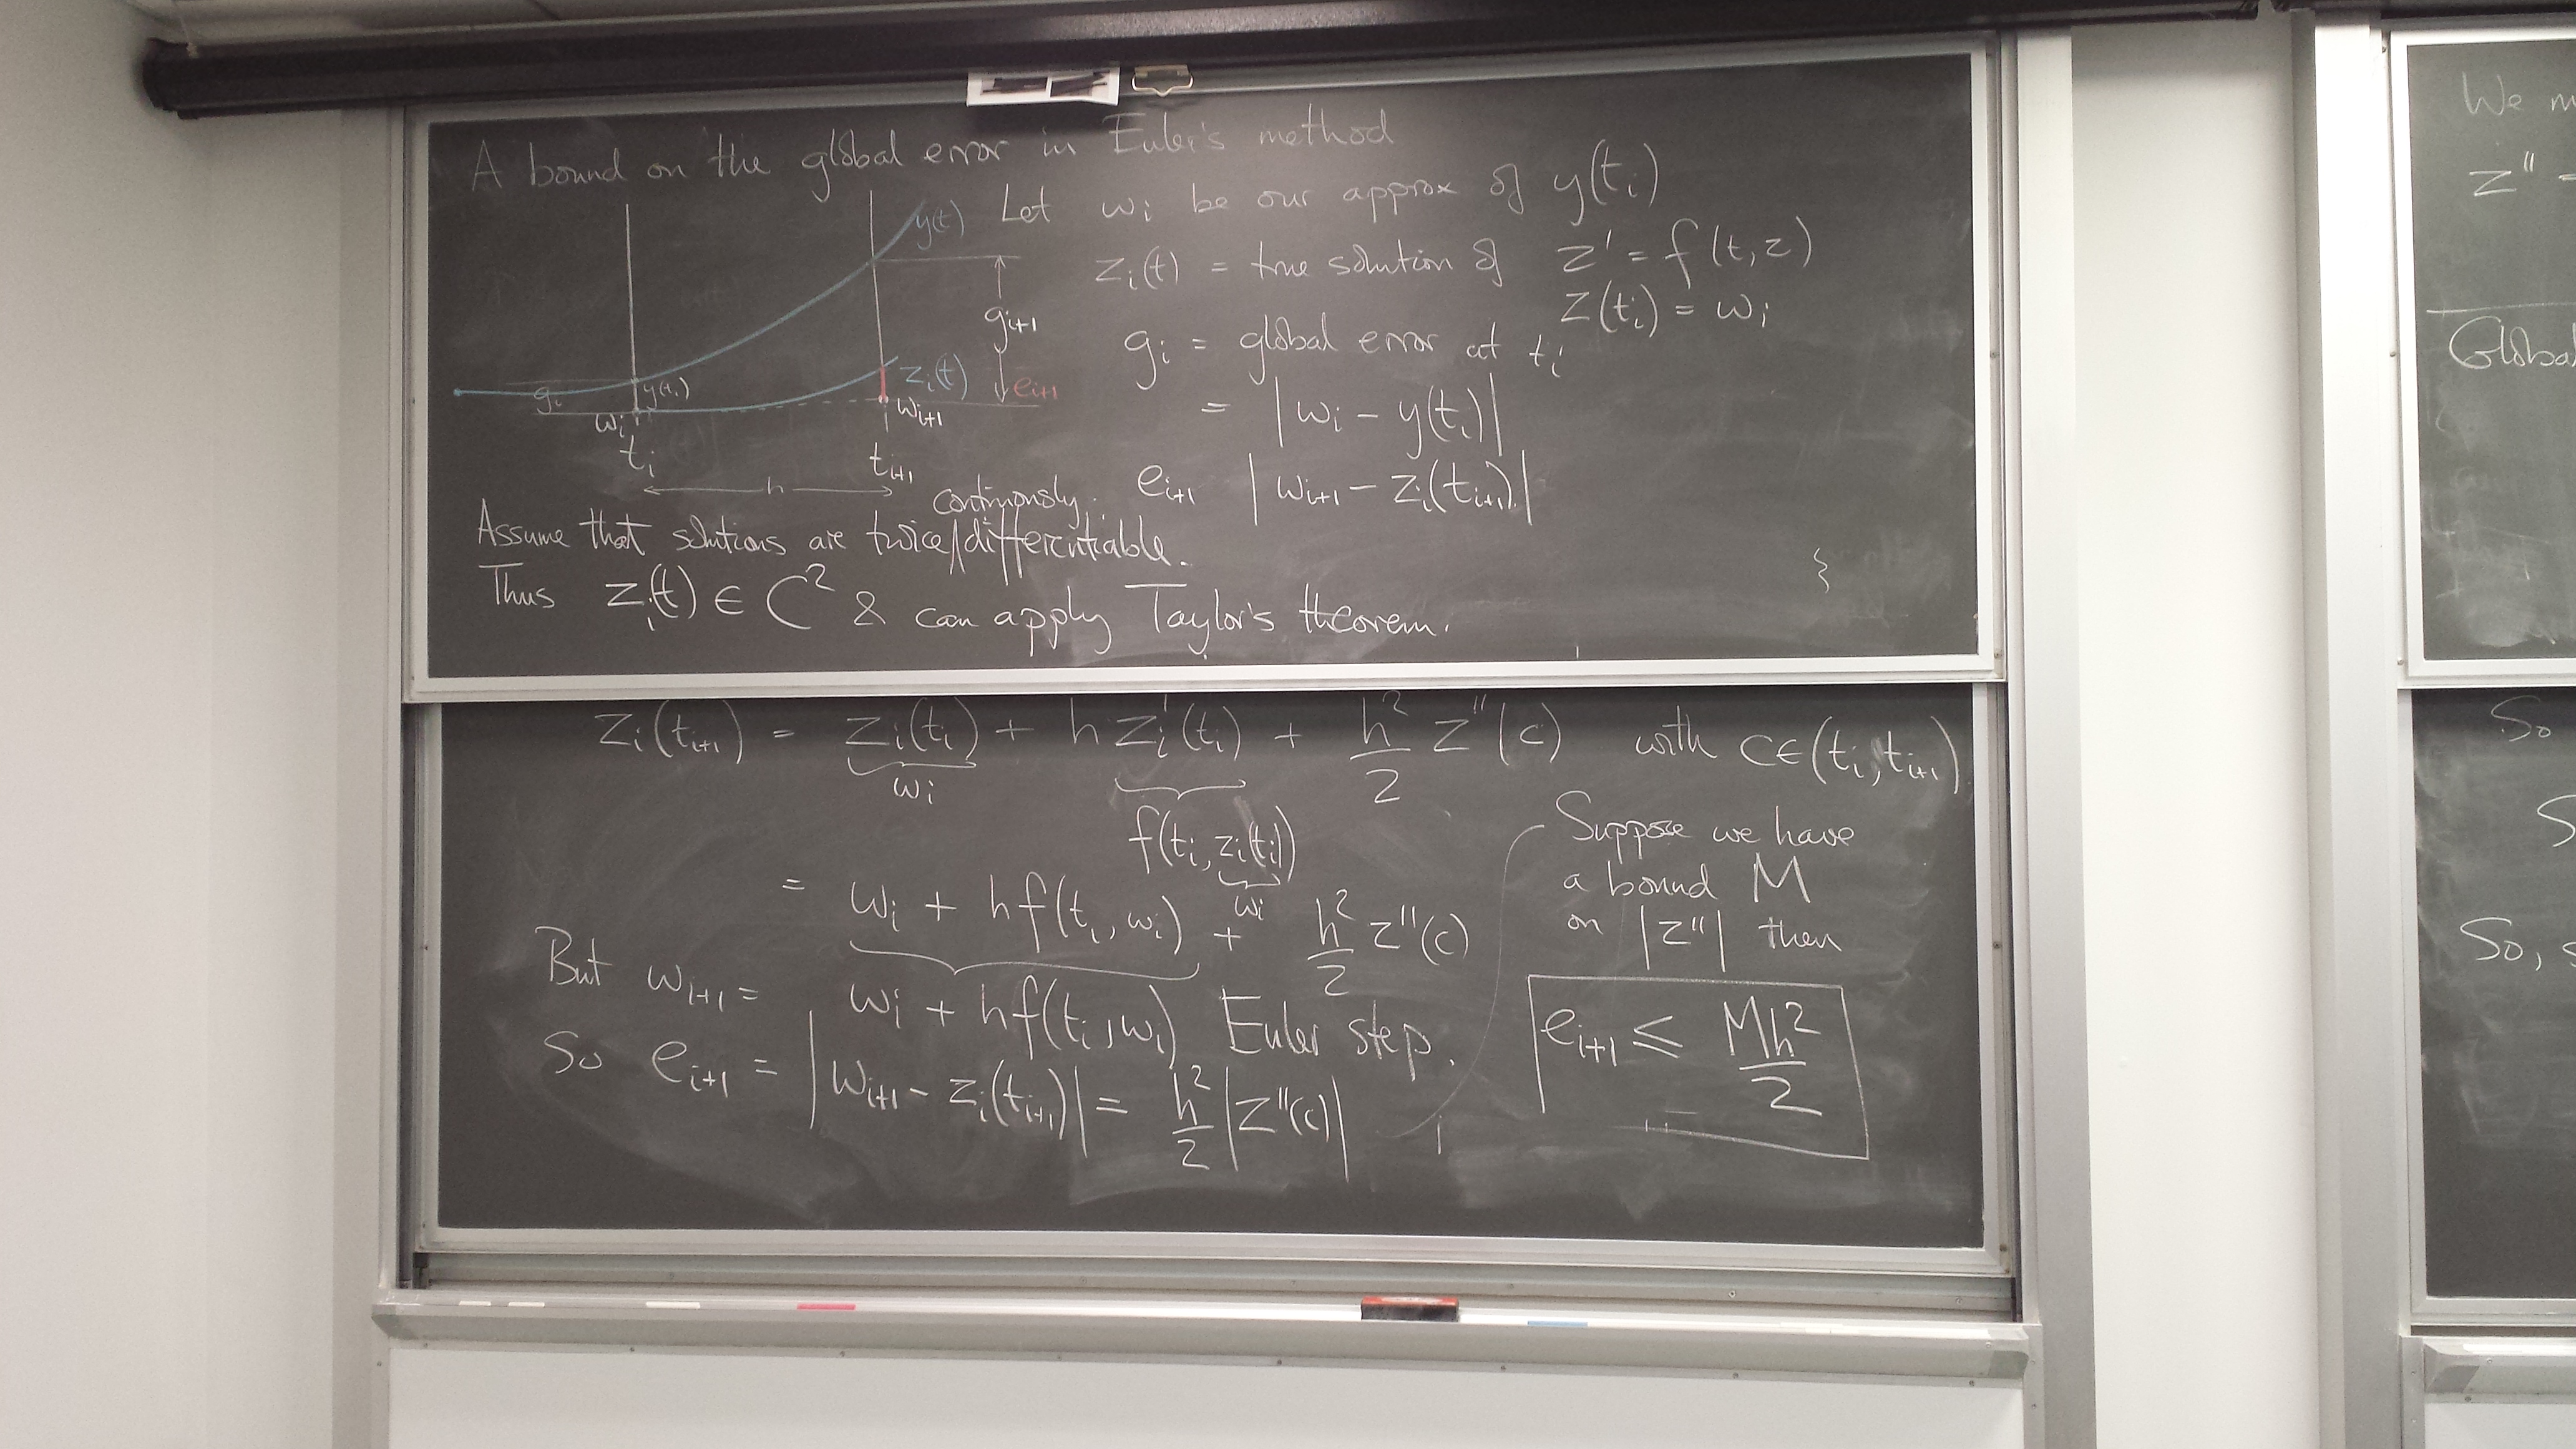 A bound on the global error in Euler's method
Let wᵢ be our approx of y(tᵢ)
zᵢ(t) = true solution of z' = f(t,z)
z(tᵢ) = wᵢ
gᵢ = global error at tᵢ
= |wᵢ − y(tᵢ)|
eᵢ₊₁ |wᵢ₊₁ − zᵢ(tᵢ₊₁)|
y(t)
gᵢ₊₁
zᵢ(t)
eᵢ₊₁
gᵢ
y(tᵢ)
wᵢ
wᵢ₊₁
tᵢ
tᵢ₊₁
h
continuously
Assume that solutions are twice/differentiable.
Thus zᵢ(t) ∈ C² & can apply Taylor's theorem.
zᵢ(tᵢ₊₁) = zᵢ(tᵢ) + h zᵢ'(tᵢ) + h²/2 z''(c) with c∈(tᵢ,tᵢ₊₁)
wᵢ
f(tᵢ, zᵢ(tᵢ))
wᵢ
= wᵢ + hf(tᵢ, wᵢ) + h²/2 z''(c)
But wᵢ₊₁ = wᵢ + hf(tᵢ, wᵢ) Euler step.
So eᵢ₊₁ = |wᵢ₊₁ − zᵢ(tᵢ₊₁)| = h²/2 |z''(c)|
Suppose we have
a bound M
on |z''| then
eᵢ₊₁ ≤ Mh²/2
We
z''
Global
So
So,